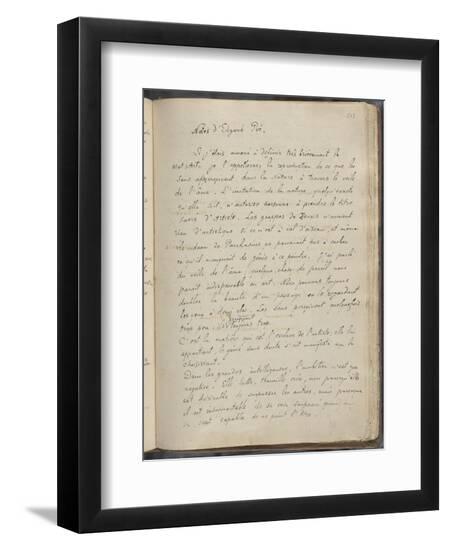 Notes d'Edgard Poë.
Si j'étais amené à définir très brièvement le
mot Art, je l'appellerais la reproduction de ce que les
sens aperçoivent dans la nature à travers le voile
de l'âme. L'imitation de la nature, quelque exacte
qu'elle soit, n'autorise personne à prendre le titre
sacré d'Artiste. Les grappes de Zeuxis n'avaient
rien d'artistique si ce n'est à l'œil d'oiseau, et même
le rideau de Parrhasius ne pouvait pas à cacher
ce qu'il manquait de génie à ce peintre. J'ai parlé
du voile de l'âme, quelque chose de pareil nous
paraît indispensable en art. Nous pouvons toujours
doubler la beauté d'un paysage en le regardant
les yeux à demi clos. Les sens perçoivent quelquefois
trop peu, toujours trop.
C'est la matière qui est l'esclave de l'artiste, elle lui
appartient, le génie sans doute s'est manifesté par le
choisissant.
Dans les grandes intelligences, l'ambition n'est que
négative. Elle lutte, travaille, crée, non parce qu'il
est désirable de surpasser les autres, mais parce que
il est insupportable de se voir surpassé quand on
se sent capable de ne point l'être.